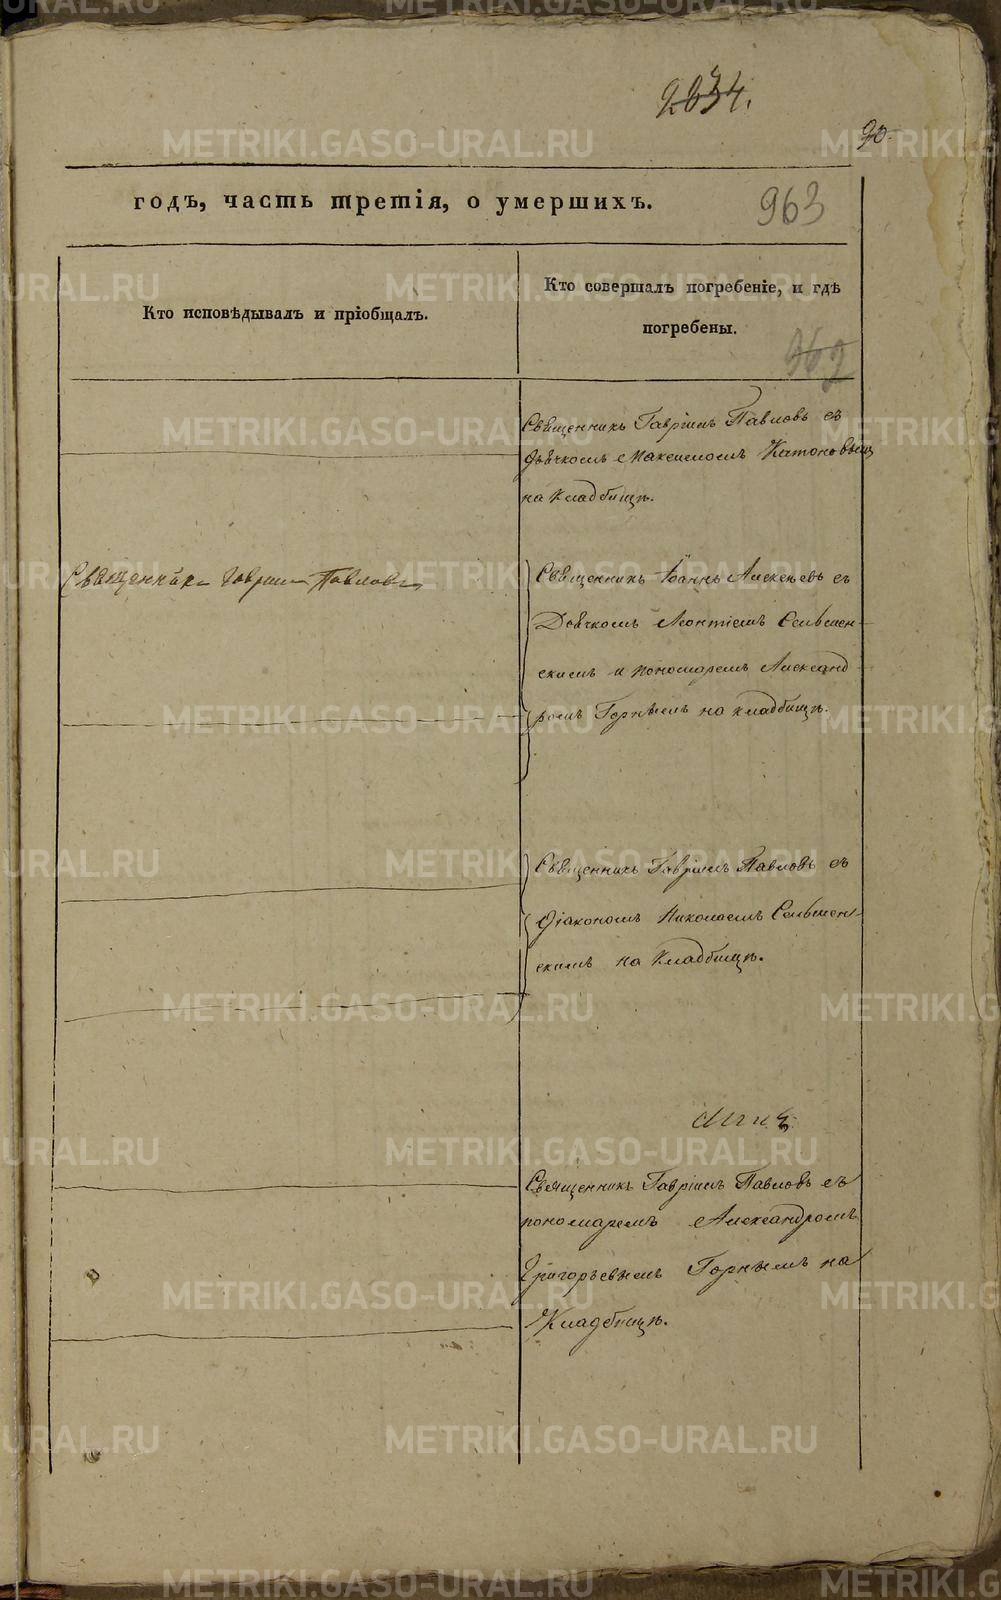 2634.
90.
годъ, часть третія, о умершихъ.
963
Кто исповѣдывалъ и пріобщалъ.
Кто совершалъ погребеніе, и гдѣ
погребены.
962
Священникъ Гавріилъ Павловъ съ
дьячкомъ Максимомъ Катоновымъ
на кладбищѣ.
Священникъ Гавріилъ Павловъ
Священникъ Іоаннъ Алексѣевъ съ
Дьячкомъ Леонтіемъ Сельмен-
скимъ и пономаремъ Александ-
ромъ Горнымъ на кладбищѣ.
Священникъ Гавріилъ Павловъ съ
Діакономъ Николаемъ Сельмен-
скимъ на кладбищѣ.
Священникъ Гавріилъ Павловъ съ
пономаремъ Александромъ
Григорьевымъ Горнымъ на
Кладбищѣ.
METRIKI.GASO-URAL.RU